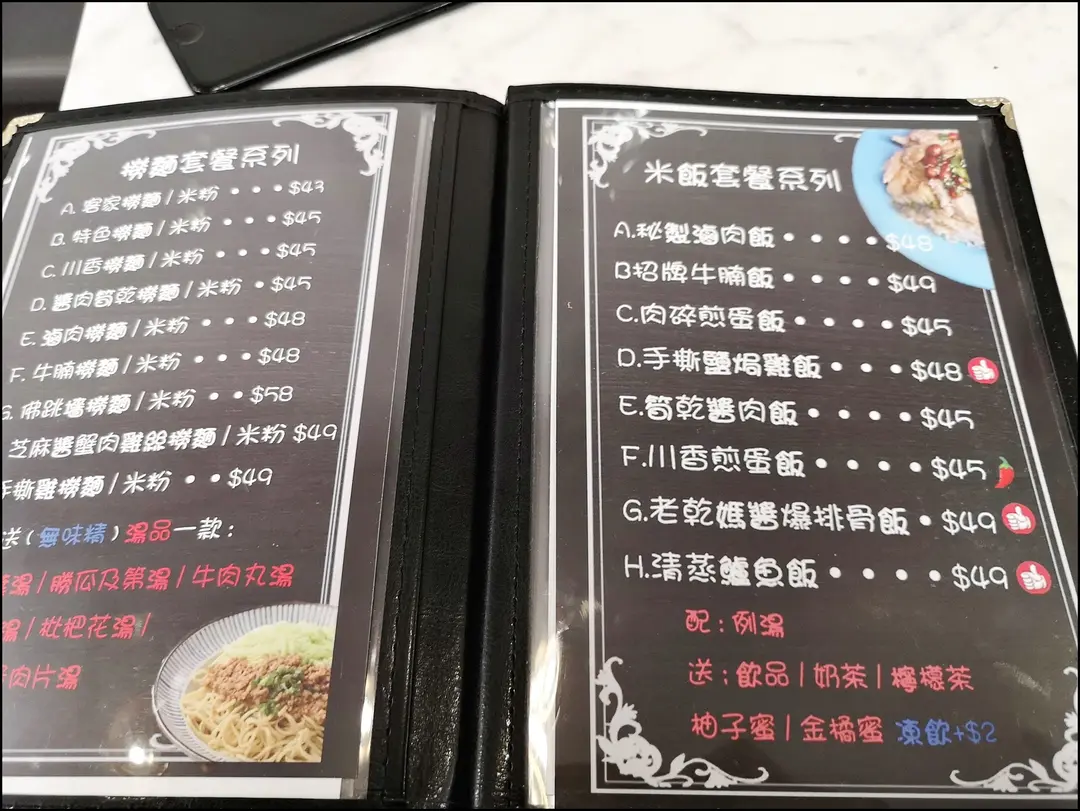 撈麵套餐系列
A. 客家撈麵/米粉 • • • $43
B. 特色撈麵/米粉 • • • $45
C. 川香撈麵/米粉 • • • $45
D. 醬肉筍乾撈麵/米粉 • $45
E. 滷肉撈麵/米粉 • • • $48
F. 牛腩撈麵/米粉 • • • $48
G. 佛跳墻撈麵/米粉 • • $58
芝麻醬蟹肉雞絲撈麵/米粉 $49
手撕雞撈麵/米粉 • • $49
送(無味精)湯品一款:
湯/勝瓜及第湯/牛肉丸湯
湯/枇杷花湯/
肉片湯
米飯套餐系列
A.秘製滷肉飯 • • • • $48
B招牌牛腩飯 • • • • $49
C.肉碎煎蛋飯 • • • • $45
D.手撕鹽焗雞飯 • • • $48
E.筍乾醬肉飯 • • • • $45
F.川香煎蛋飯 • • • • $45
G.老乾媽醬爆排骨飯 • $49
H.清蒸鱸魚飯 • • • • • $49
配:例湯
送:飲品/奶茶/檸檬茶
柚子蜜/金橘蜜 凍飲+$2